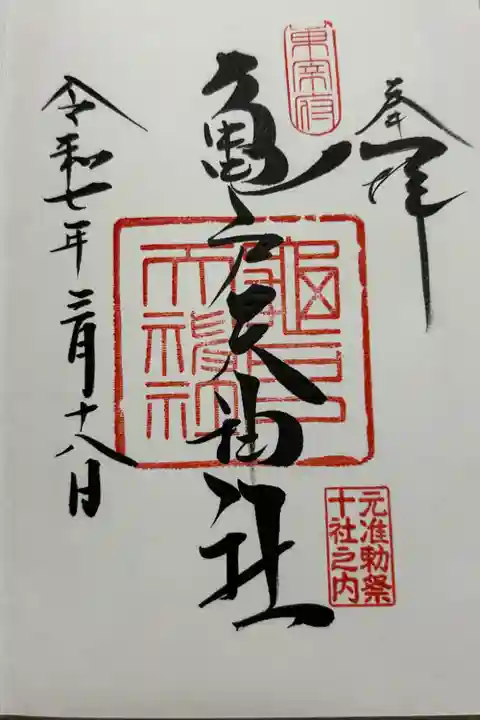 奉拝
東宰府
亀戸天神社
亀戸天神社
元准勅祭
十社之内
令和七年三月十八日